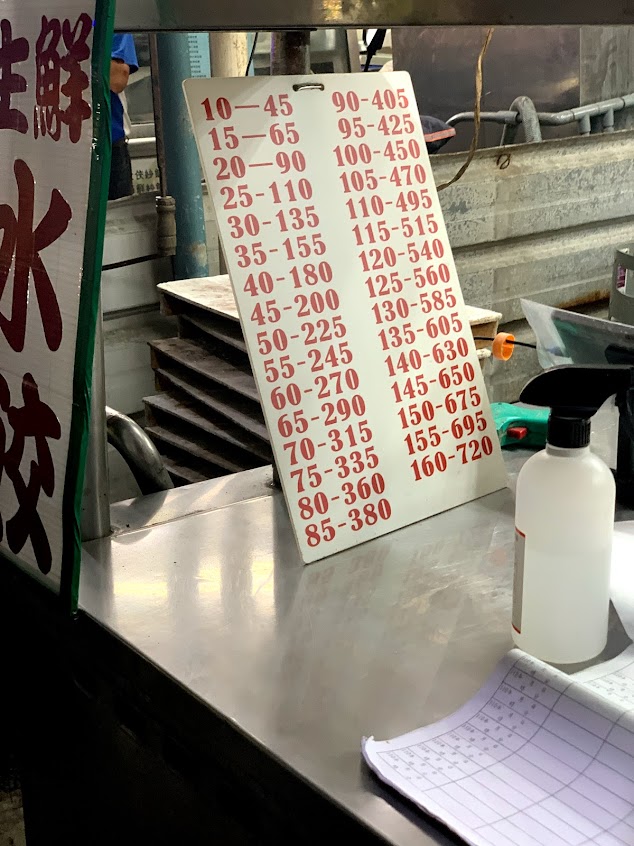 生鮮
水
餃
10—45
15—65
20—90
25-110
30-135
35-155
40-180
45-200
50-225
55-245
60-270
65-290
70-315
75-335
80-360
85-380
90-405
95-425
100-450
105-470
110-495
115-515
120-540
125-560
130-585
135-605
140-630
145-650
150-675
155-695
160-720